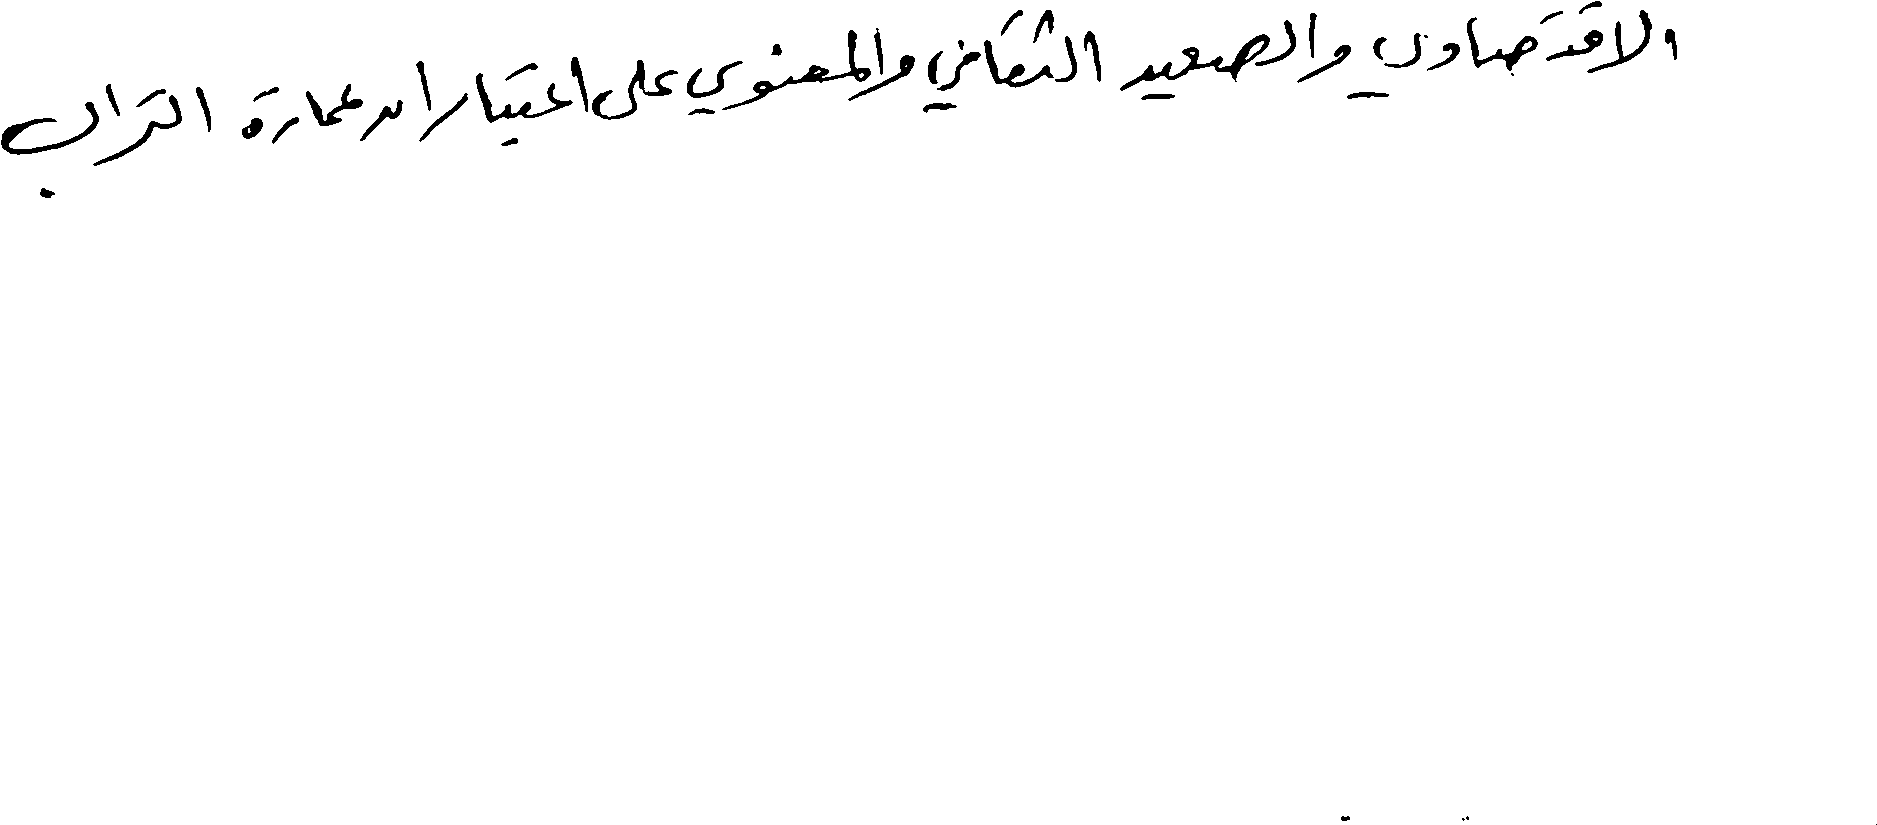 والاقتصادي والصعيد الثقافي والمعنوي على اعتبار ان عمارة التراب